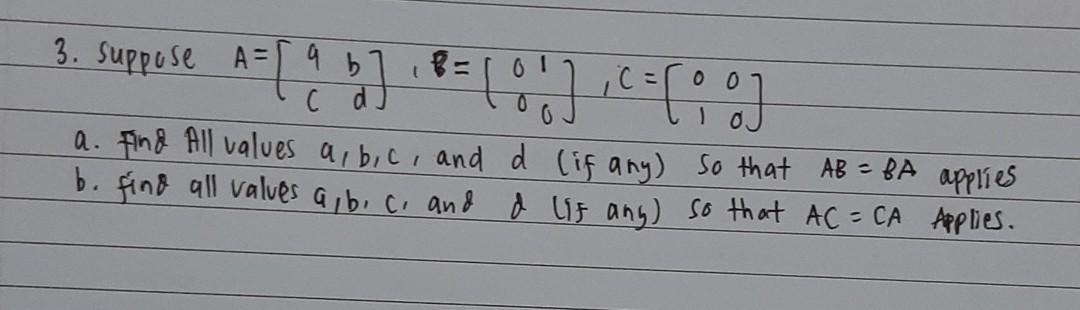 3. Suppose A = [ a b ; c d ] , B = [ 0 1 ; 0 0 ] , C = [ 0 0 ; 1 0 ]
a. Find All values a, b, c, and d (if any) so that AB = BA applies
b. find all values a, b, c, and d (if any) so that AC = CA Applies.